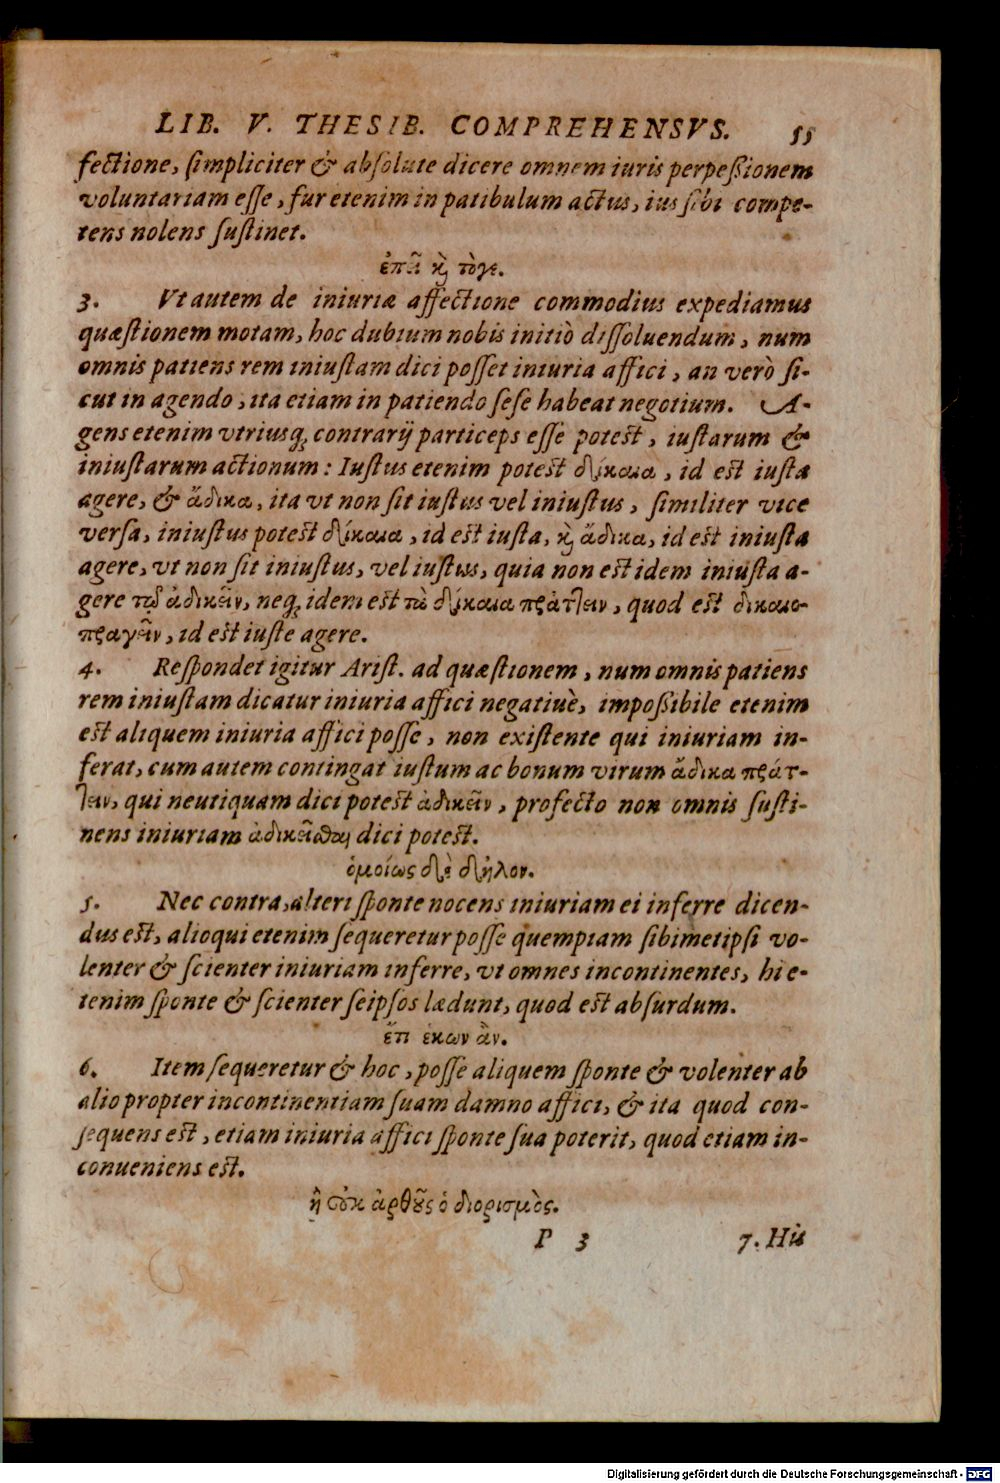 LIB. V. THESIB. COMPREHENSVS. 55
fectione, ſimpliciter & abſolute dicere omnem iuris perpeßionem
voluntariam eſſe, fur etenim in patibulum actus, ius ſibi compe-
tens nolens ſuſtinet.
ἐπεῖ καὶ τόγε.
3. Vt autem de iniuriæ affectione commodius expediamus
quæſtionem motam, hoc dubium nobis initiò diſſoluendum, num
omnis patiens rem iniuſtam dici poſſet iniuria affici, an verò ſi-
cut in agendo, ita etiam in patiendo ſeſe habeat negotium. A-
gens etenim vtriusq; contrarij particeps eſſe poteſt, iuſtarum &
iniuſtarum actionum: Iuſtus etenim poteſt δίκαια, id eſt iuſta
agere, & ἄδικα, ita vt non ſit iuſtus vel iniuſtus, ſimiliter vice
verſa, iniuſtus poteſt δίκαια, id eſt iuſta, καὶ ἄδικα, id eſt iniuſta
agere, vt non ſit iniuſtus, vel iuſtus, quia non eſt idem iniuſta a-
gere τῷ ἀδικεῖν, neq; idem eſt τὼ δίκαια πράττειν, quod eſt δικαιο-
πραγεῖν, id eſt iuſte agere.
4. Reſpondet igitur Ariſt. ad quæſtionem, num omnis patiens
rem iniuſtam dicatur iniuria affici negatiuè, impoßibile etenim
eſt aliquem iniuria affici poſſe, non exiſtente qui iniuriam in-
ferat, cum autem contingat iuſtum ac bonum virum ἄδικα πράτ-
τειν, qui neutiquam dici poteſt ἀδικεῖν, profecto non omnis ſuſti-
nens iniuriam ἀδικεῖσθαι dici poteſt.
ὁμοίως δὲ δῆλον.
5. Nec contra, alteri ſponte nocens iniuriam ei inferre dicen-
dus eſt, alioqui etenim ſequeretur poſſe quempiam ſibimetipſi vo-
lenter & ſcienter iniuriam inferre, vt omnes incontinentes, hi e-
tenim ſponte & ſcienter ſeipſos lædunt, quod eſt abſurdum.
ἔτι ἑκων ἂν.
6. Item ſequeretur & hoc, poſſe aliquem ſponte & volenter ab
alio propter incontinentiam ſuam damno affici, & ita quod con-
ſequens eſt, etiam iniuria affici ſponte ſua poterit, quod etiam in-
conueniens eſt.
ἢ οὐκ ἀρθοῦς ὁ διορισμὸς.
P 3 7. His
Digitalisierung gefördert durch die Deutsche Forschungsgemeinschaft - DFG